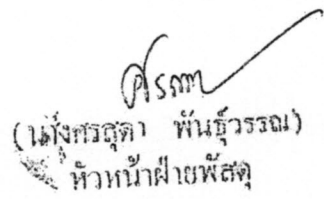 (นางศรสุดา พันธุ์วรรณ)
หัวหน้าฝ่ายพัสดุ